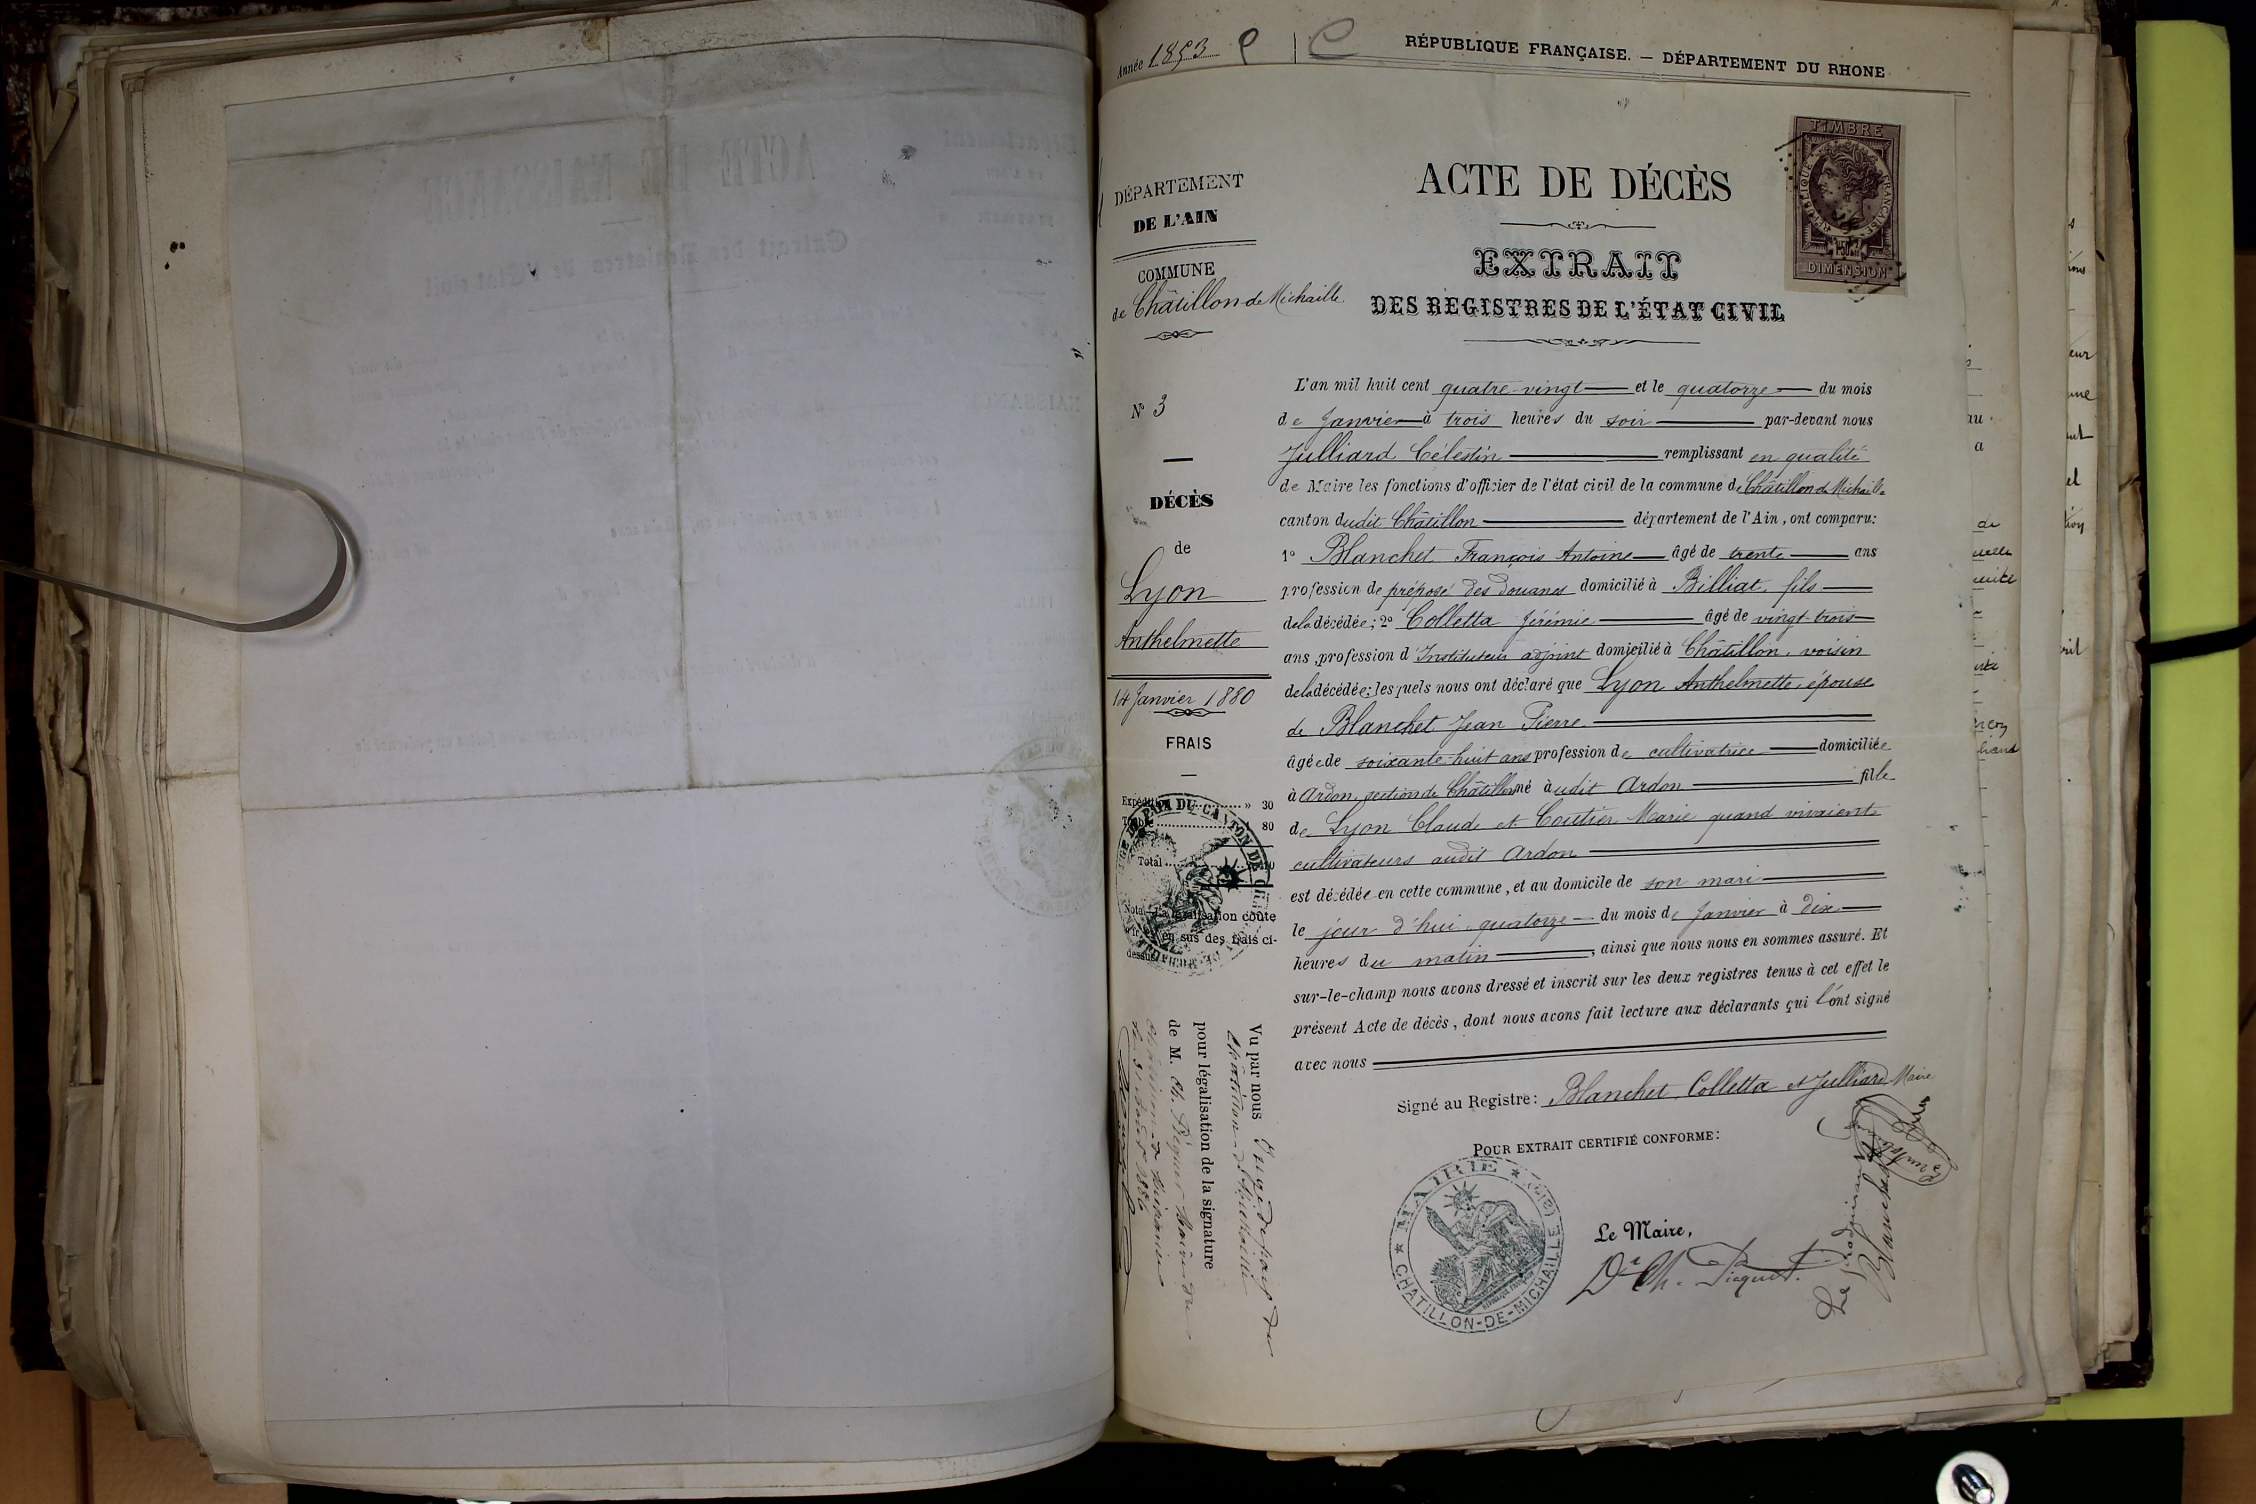 Année 1853
RÉPUBLIQUE FRANÇAISE. — DÉPARTEMENT DU RHONE
DÉPARTEMENT
DE L'AIN
COMMUNE
de Châtillon de Michaille
N° 3
DÉCÈS
de
Lyon
Anthelmette
14 Janvier 1880
FRAIS
Expédition » 30
80
Total
La légalisation coûte
en sus des frais ci-
dessus
Vu par nous Juge de paix du
Châtillon-de-Michaille
pour légalisation de la signature
de M. Ch.
1886
TIMBRE
RÉPUBLIQUE FRANÇAISE
DIMENSION
ACTE DE DÉCÈS
EXTRAIT
DES REGISTRES DE L'ÉTAT CIVIL
L'an mil huit cent quatre-vingt et le quatorze du mois
de Janvier à trois heures du soir par-devant nous
Julliard Célestin remplissant en qualité
de Maire les fonctions d'officier de l'état civil de la commune de Châtillon de Michaille
canton dudit Châtillon département de l'Ain, ont comparu:
1° Blanchet François Antoine âgé de trente ans
profession de préposé des Douanes domicilié à Billiat, fils
de la décédée; 2° Colletta Jérémie âgé de vingt-trois
ans, profession d'Instituteur adjoint domicilié à Châtillon, voisin
de la décédée; lesquels nous ont déclaré que Lyon Anthelmette, épouse
de Blanchet Jean Pierre
âgée de soixante-huit ans profession de cultivatrice domiciliée
à Ardon, section de Châtillon né à udit Ardon fille
de Lyon Claude et Coutier Marie quand vivaient
cultivateurs audit Ardon
est décédée en cette commune, et au domicile de son mari
le jour d'hui quatorze du mois de Janvier à dix
heures du matin, ainsi que nous nous en sommes assuré. Et
sur-le-champ nous avons dressé et inscrit sur les deux registres tenus à cet effet le
présent Acte de décès, dont nous avons fait lecture aux déclarants qui l'ont signé
avec nous
Signé au Registre: Blanchet, Colletta et Julliard Maire
POUR EXTRAIT CERTIFIÉ CONFORME:
MAIRIE
CHATILLON-DE-MICHAILLE (AIN)
Le Maire,
Dr Ch.
Blanchet